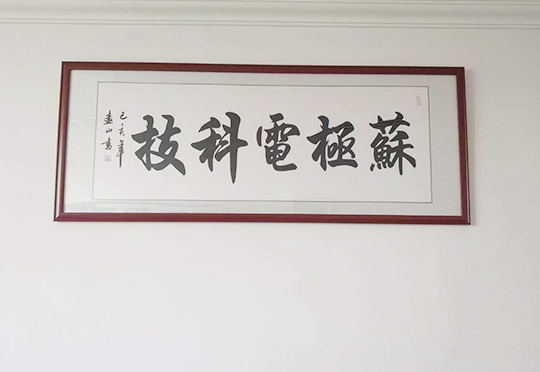 蘇極電科技
己亥年
山書